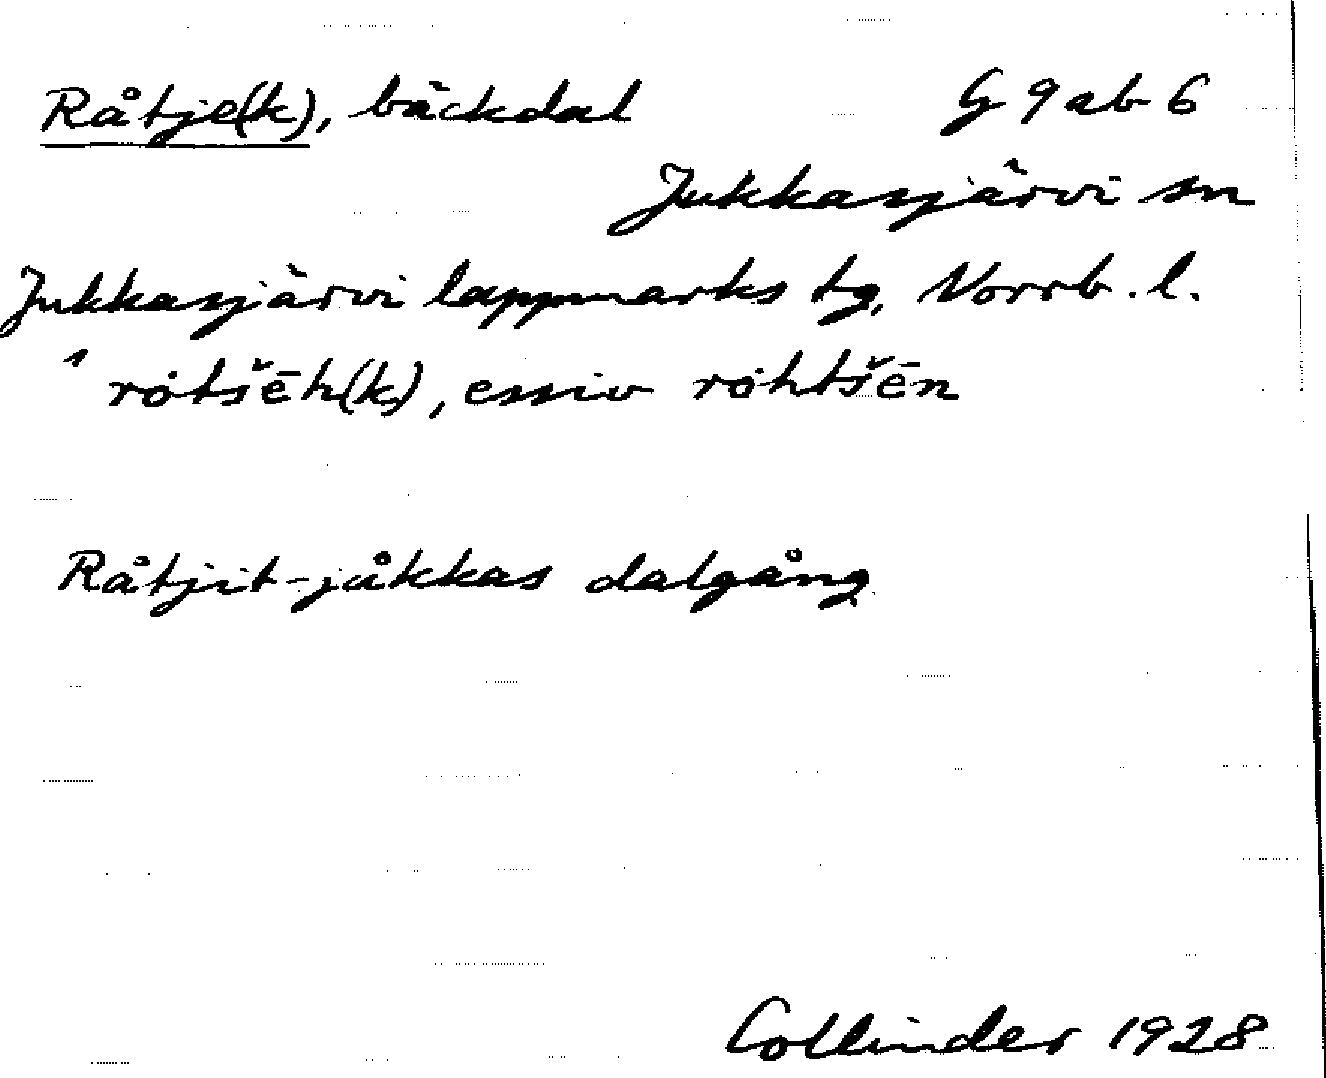 Råtje(k), bäckdal G 9 ab 6
Jukkasjärvi sn
Jukkasjärvi lappmarks tg, Norrb. l.
ˈrȯtšēh(k), essiv rȯhtšēn
Råtjit-jåkkas dalgång
Collinder 1928